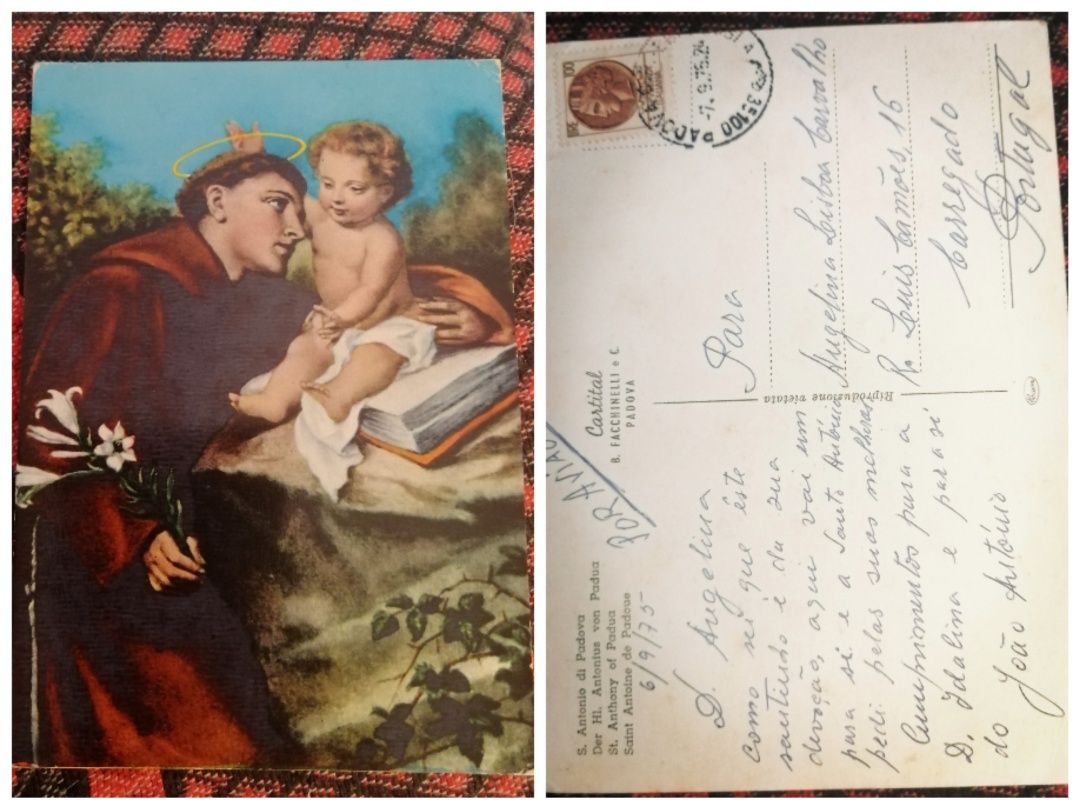 S. Antonio di Padova
Der Hl. Antonius von Padua
St. Anthony of Padua
Saint Antoine de Padoue
6/9/75
POR AVIÃO
D. Angelina
como sei que êste
santinho é da sua
devoção, aqui vai um
para si e a Santo António
pedi pelas suas melhoras
Cumprimentos para a
D. Idalina e para si
do João António
Cartital
B. FACCHINELLI & C.
PADOVA
Riproduzione vietata
100
35100 PADOVA
-7.9.75.24
Para
Angelina Lisboa Carvalho
R. Luis Camões, 16
Carregado
Portugal